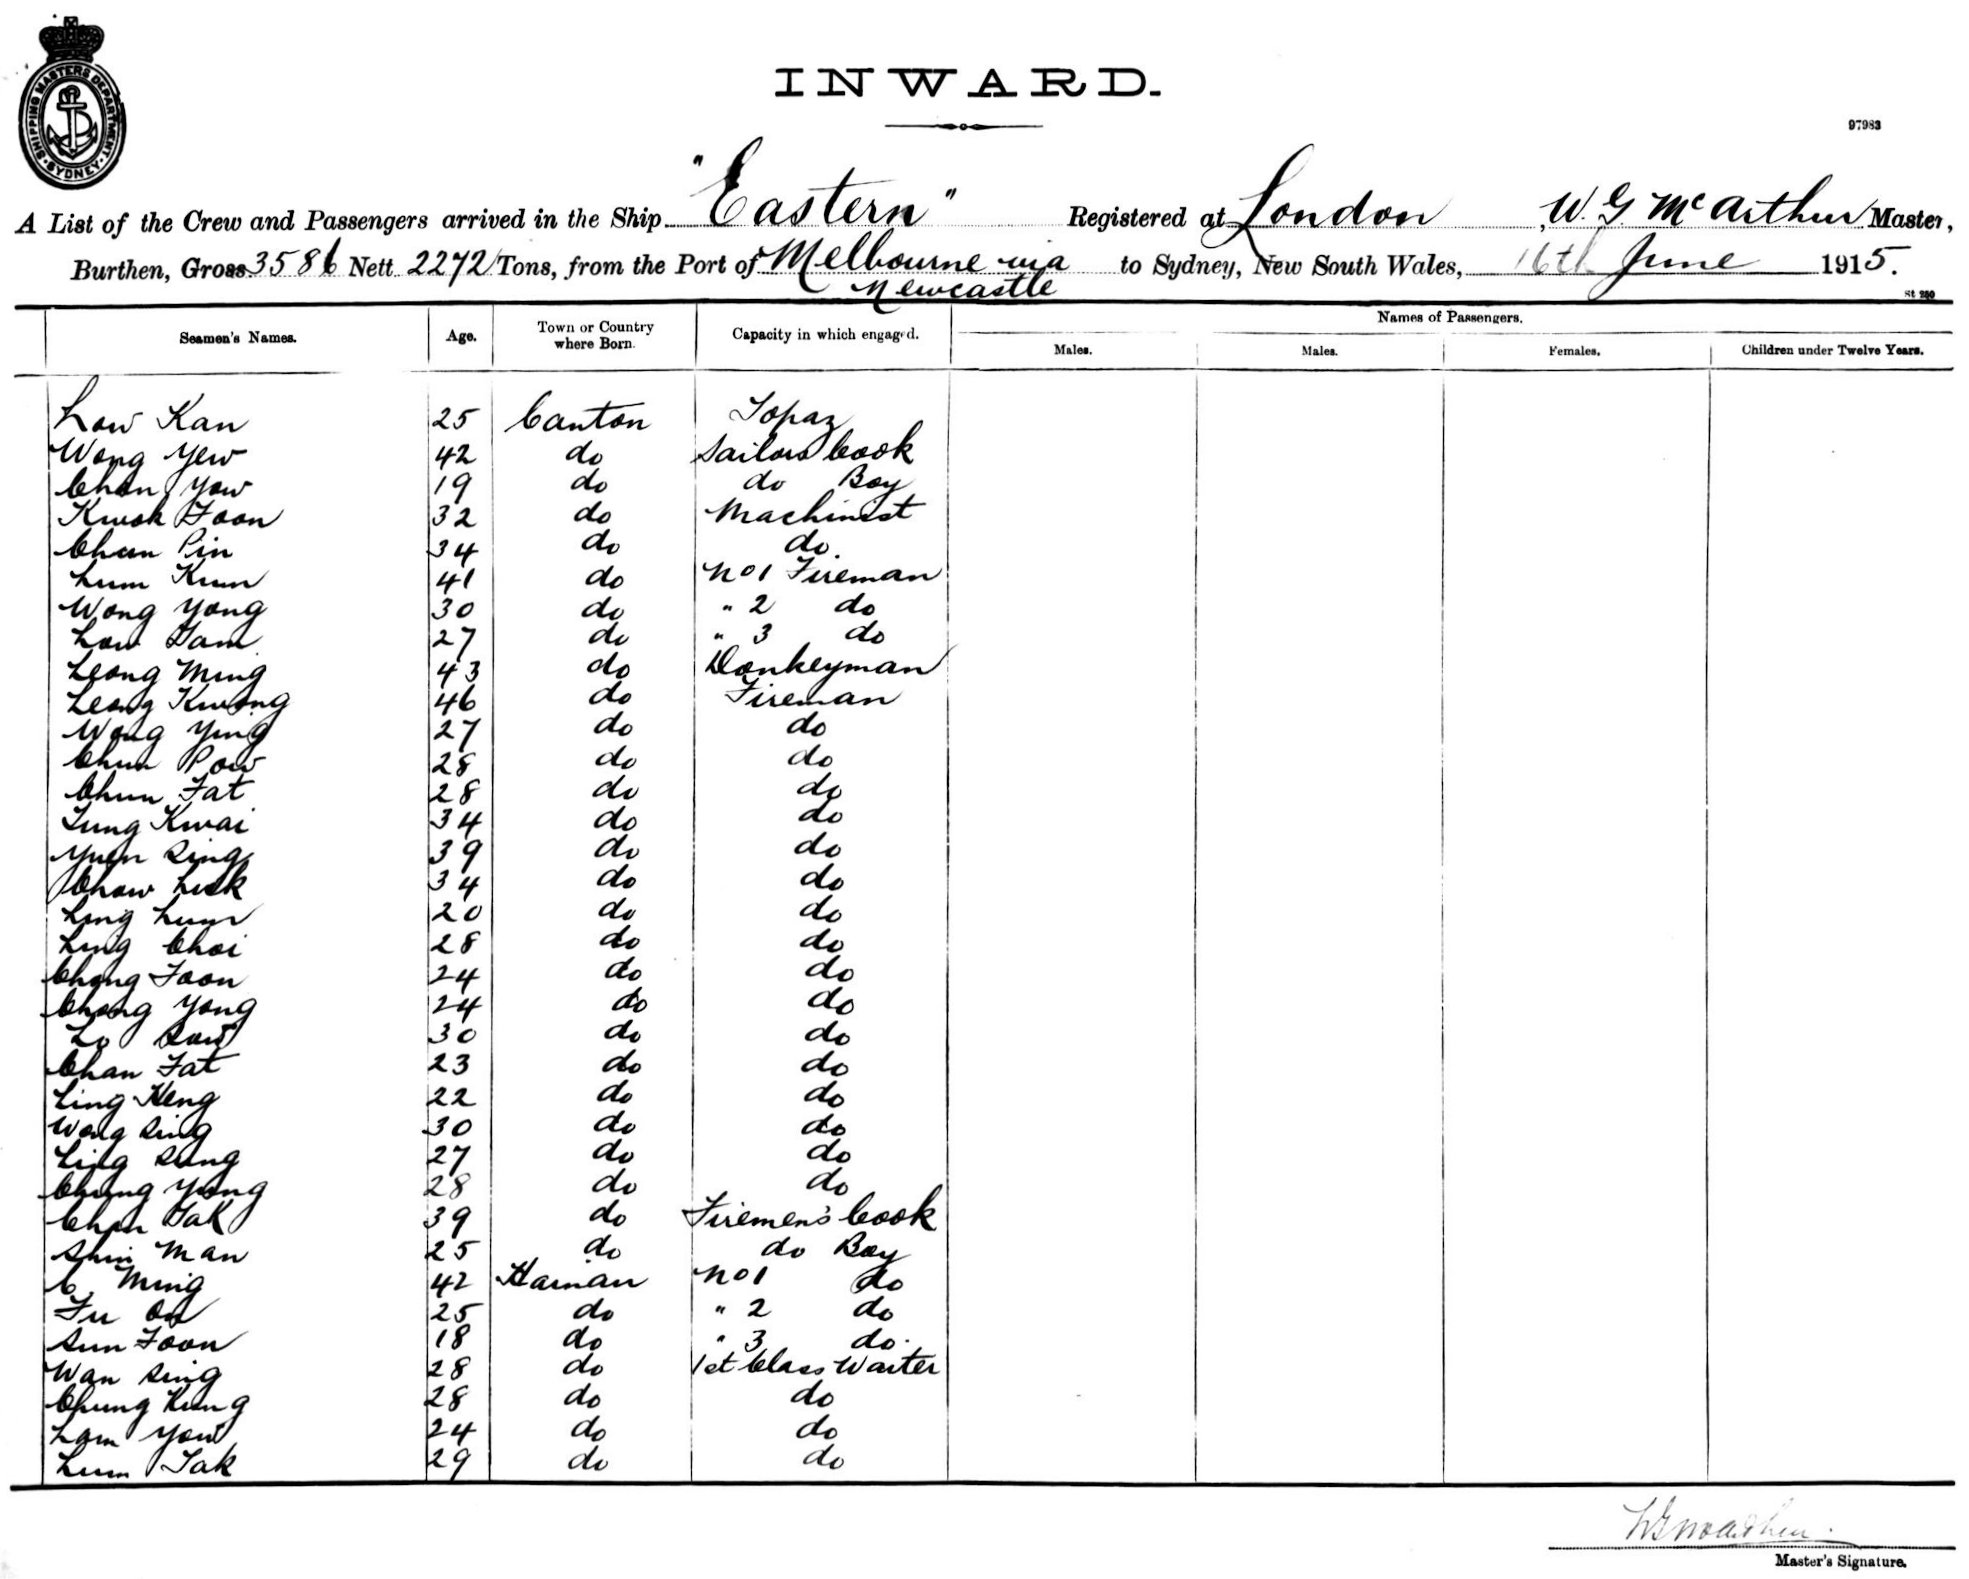 SHIPPING MASTERS DEPARTMENT · SYDNEY ·
INWARD.
97983
A List of the Crew and Passengers arrived in the Ship "Eastern" Registered at London, W. G. McArthur Master,
Burthen, Gross 3586 Nett 2272 Tons, from the Port of Melbourne via Newcastle to Sydney, New South Wales, 16th June 1915.
St 250
Names of Passengers.
Seamen's Names. Age. Town or Country where Born. Capacity in which engaged. Males. Males. Females. Children under Twelve Years.
Low Kan 25 Canton Topaz
Wong Yew 42 do Sailors Cook
Chan Yow 19 do do Boy
Kwok Foon 32 do Machinist
Chun Pin 34 do do.
Lum Kum 41 do No 1 Fireman
Wong Yong 30 do " 2 do
Low Sam 27 do " 3 do
Leong Ming 43 do Donkeyman
Leong Kwong 46 do Fireman
Wong Ying 27 do do
Chun Pow 28 do do
Chun Fat 28 do do
Tung Kwai 34 do do
Yuen Sing 39 do do
Chow Luk 34 do do
Ling Lum 20 do do
Ling Choi 28 do do
Chong Foon 24 do do
Chong Yong 24 do do
Lo Sow 30 do do
Chan Fat 23 do do
Ling Heng 22 do do
Wong Sing 30 do do
Ling Sung 27 do do
Chung Yung 28 do do
Chan Tak 39 do Firemen's Cook
Shin Man 25 do do Boy
C Ming 42 Hainan No 1 do
Fu On 25 do " 2 do
Sun Foon 18 do " 3 do.
Wan Sing 28 do 1st Class Waiter
Chung Kung 28 do do
Lam Yow 24 do do
Lum Tak 29 do do
W G McArthur.
Master's Signature.